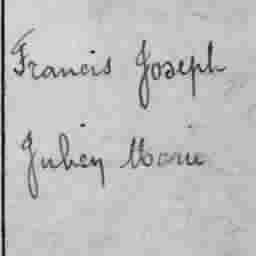 Francis Joseph
Julien Marie